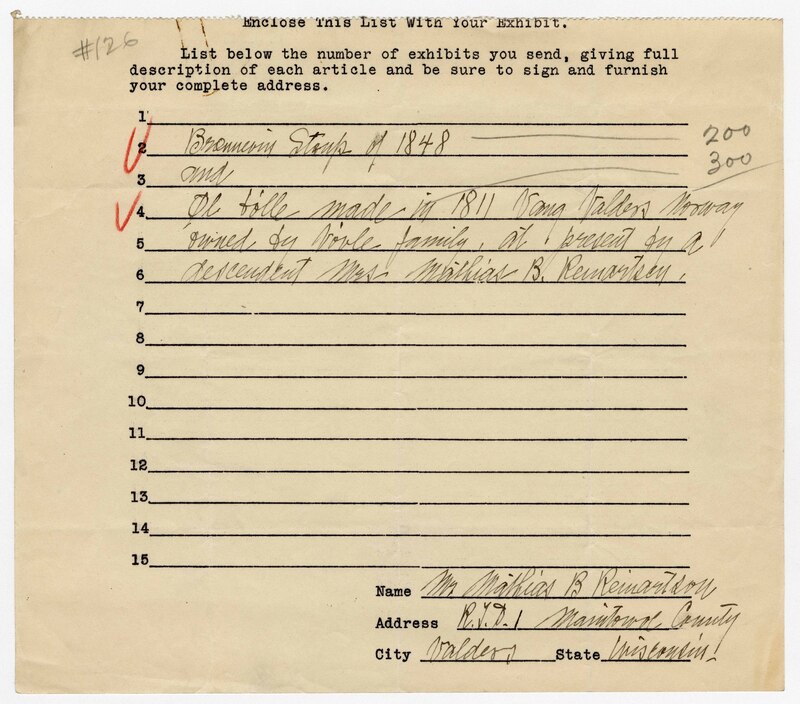 Enclose This List With Your Exhibit.
#126
List below the number of exhibits you send, giving full
description of each article and be sure to sign and furnish
your complete address.
1
2 Brannevin Stoup of 1848 200
3 and 300
4 Øl Bolle made in 1811 Vang Valders Norway
5 owned by family, at present by a
6 descendent Mrs Mathias B. Reinartsen.
7
8
9
10
11
12
13
14
15
Name Mr Mathias B Reinartson
Address R.F.D. 1 Manitowoc County
City Valders State Wisconsin